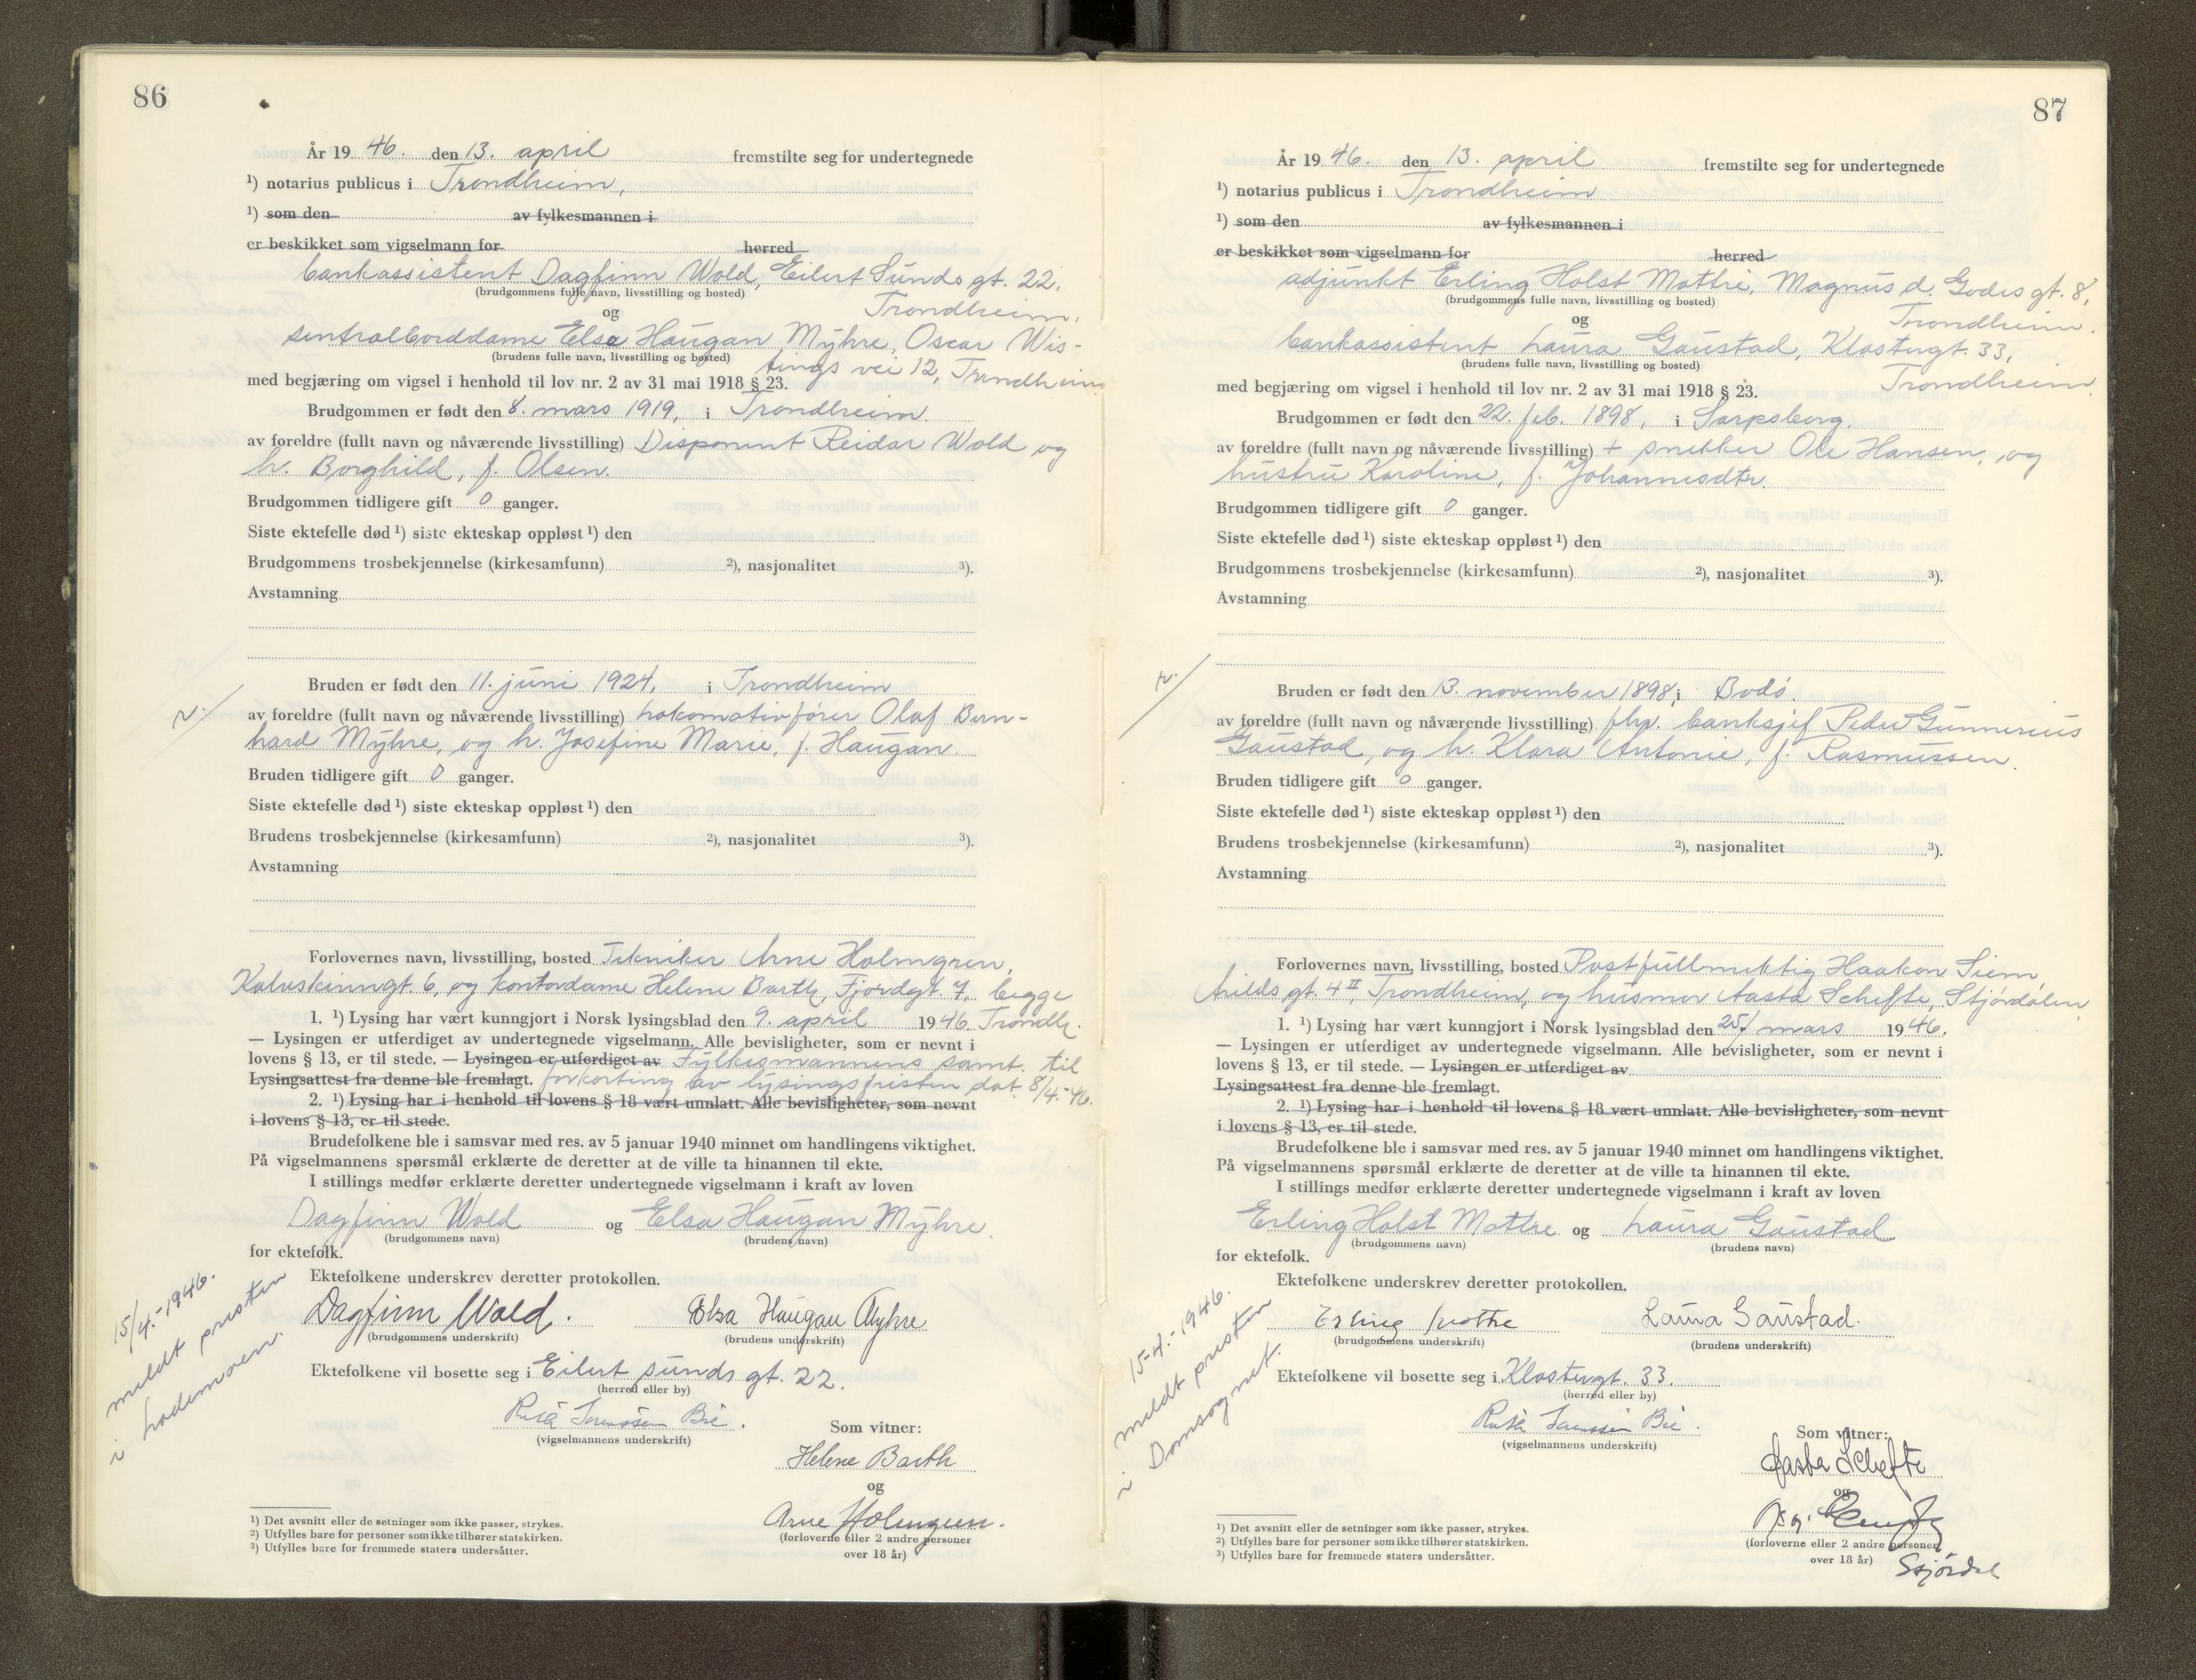 86
År 1946. den 13. april fremstilte seg for undertegnede
¹) notarius publicus i Trondheim,
¹) som den av fylkesmannen i
er beskikket som vigselmann for herred
bankassistent Dagfinn Wold, Eilert Sunds gt. 22,
(brudgommens fulle navn, livsstilling og bosted)
og Trondheim,
sentralborddame Elsa Haugan Myhre, Oscar Wis-
(brudens fulle navn, livsstilling og bosted)
tings vei 12, Trondheim
med begjæring om vigsel i henhold til lov nr. 2 av 31 mai 1918 § 23.
Brudgommen er født den 8. mars 1919, i Trondheim.
av foreldre (fullt navn og nåværende livsstilling) Disponent Reidar Wold og
h. Borghild, f. Olsen.
Brudgommen tidligere gift 0 ganger.
Siste ektefelle død ¹) siste ekteskap oppløst ¹) den
Brudgommens trosbekjennelse (kirkesamfunn) ²), nasjonalitet ³).
Avstamning
Bruden er født den 11. juni 1924, i Trondheim
av foreldre (fullt navn og nåværende livsstilling) Lokomotivfører Olaf Bern-
hard Myhre, og h. Josefine Marie, f. Haugan.
Bruden tidligere gift 0 ganger.
Siste ektefelle død ¹) siste ekteskap oppløst ¹) den
Brudens trosbekjennelse (kirkesamfunn) ²), nasjonalitet ³).
Avstamning
Forlovernes navn, livsstilling, bosted Tekniker Arne Holmgren,
Kalvskinngt. 6, og kontordame Helene Barth, Fjordgt. 7, begge
1. ¹) Lysing har vært kunngjort i Norsk lysingsblad den 9. april 1946. Trondh.
— Lysingen er utferdiget av undertegnede vigselmann. Alle bevisligheter, som er nevnt i
lovens § 13, er til stede. — Lysingen er utferdiget av Fylkesmannens samt. til
Lysingsattest fra denne ble fremlagt. forkorting av lysingsfristen dat. 8/4.-46.
2. ¹) Lysing har i henhold til lovens § 18 vært unnlatt. Alle bevisligheter, som nevnt
i lovens § 13, er til stede.
Brudefolkene ble i samsvar med res. av 5 januar 1940 minnet om handlingens viktighet.
På vigselmannens spørsmål erklærte de deretter at de ville ta hinannen til ekte.
I stillings medfør erklærte deretter undertegnede vigselmann i kraft av loven
Dagfinn Wold og Elsa Haugan Myhre.
(brudgommens navn) (brudens navn)
for ektefolk.
Ektefolkene underskrev deretter protokollen.
Dagfinn Wold. Elsa Haugan Myhre
(brudgommens underskrift) (brudens underskrift)
15/4.-1946.
meldt presten
i Lademoen.
Ektefolkene vil bosette seg i Eilert sunds gt. 22.
(herred eller by)
(vigselmannens underskrift)
Som vitner:
Helene Barth
og
Arne Holmgren.
(forloverne eller 2 andre personer
over 18 år)
¹) Det avsnitt eller de setninger som ikke passer, strykes.
²) Utfylles bare for personer som ikke tilhører statskirken.
³) Utfylles bare for fremmede staters undersåtter.
87
År 1946. den 13. april fremstilte seg for undertegnede
¹) notarius publicus i Trondheim
¹) som den av fylkesmannen i
er beskikket som vigselmann for herred
adjunkt Erling Holst Mothe, Magnus d. Godes gt. 8,
(brudgommens fulle navn, livsstilling og bosted)
og Trondheim.
bankassistent Laura Gaustad, Klostergt. 33,
(brudens fulle navn, livsstilling og bosted)
Trondheim.
med begjæring om vigsel i henhold til lov nr. 2 av 31 mai 1918 § 23.
Brudgommen er født den 22. feb. 1898, i Sarpsborg.
av foreldre (fullt navn og nåværende livsstilling) + snekker Ole Hansen, og
hustru Karoline, f. Johannesdtr.
Brudgommen tidligere gift 0 ganger.
Siste ektefelle død ¹) siste ekteskap oppløst ¹) den
Brudgommens trosbekjennelse (kirkesamfunn) ²), nasjonalitet ³).
Avstamning
Bruden er født den 13. november 1898, i Bodø.
av foreldre (fullt navn og nåværende livsstilling) fhv. banksjef Peder Gunnerius
Gaustad, og h. Klara Antonie, f. Rasmussen.
Bruden tidligere gift 0 ganger.
Siste ektefelle død ¹) siste ekteskap oppløst ¹) den
Brudens trosbekjennelse (kirkesamfunn) ²), nasjonalitet ³).
Avstamning
Forlovernes navn, livsstilling, bosted Postfullmektig Haakon Siem
gt. 4 II, Trondheim, og husmor Aasta Schefte, Stjørdalen,
1. ¹) Lysing har vært kunngjort i Norsk lysingsblad den 25/ mars 1946.
— Lysingen er utferdiget av undertegnede vigselmann. Alle bevisligheter, som er nevnt i
lovens § 13, er til stede. — Lysingen er utferdiget av
Lysingsattest fra denne ble fremlagt.
2. ¹) Lysing har i henhold til lovens § 18 vært unnlatt. Alle bevisligheter, som nevnt
i lovens § 13, er til stede.
Brudefolkene ble i samsvar med res. av 5 januar 1940 minnet om handlingens viktighet.
På vigselmannens spørsmål erklærte de deretter at de ville ta hinannen til ekte.
I stillings medfør erklærte deretter undertegnede vigselmann i kraft av loven
Erling Holst Mothe og Laura Gaustad
(brudgommens navn) (brudens navn)
for ektefolk.
Ektefolkene underskrev deretter protokollen.
Erling Mothe Laura Gaustad.
(brudgommens underskrift) (brudens underskrift)
15-4.-1946.
meldt presten
i Domsognet.
Ektefolkene vil bosette seg i Klostergt. 33.
(herred eller by)
(vigselmannens underskrift)
Som vitner:
Aasta Schefte
og
(forloverne eller 2 andre personer
over 18 år) Stjørdal
¹) Det avsnitt eller de setninger som ikke passer, strykes.
²) Utfylles bare for personer som ikke tilhører statskirken.
³) Utfylles bare for fremmede staters undersåtter.